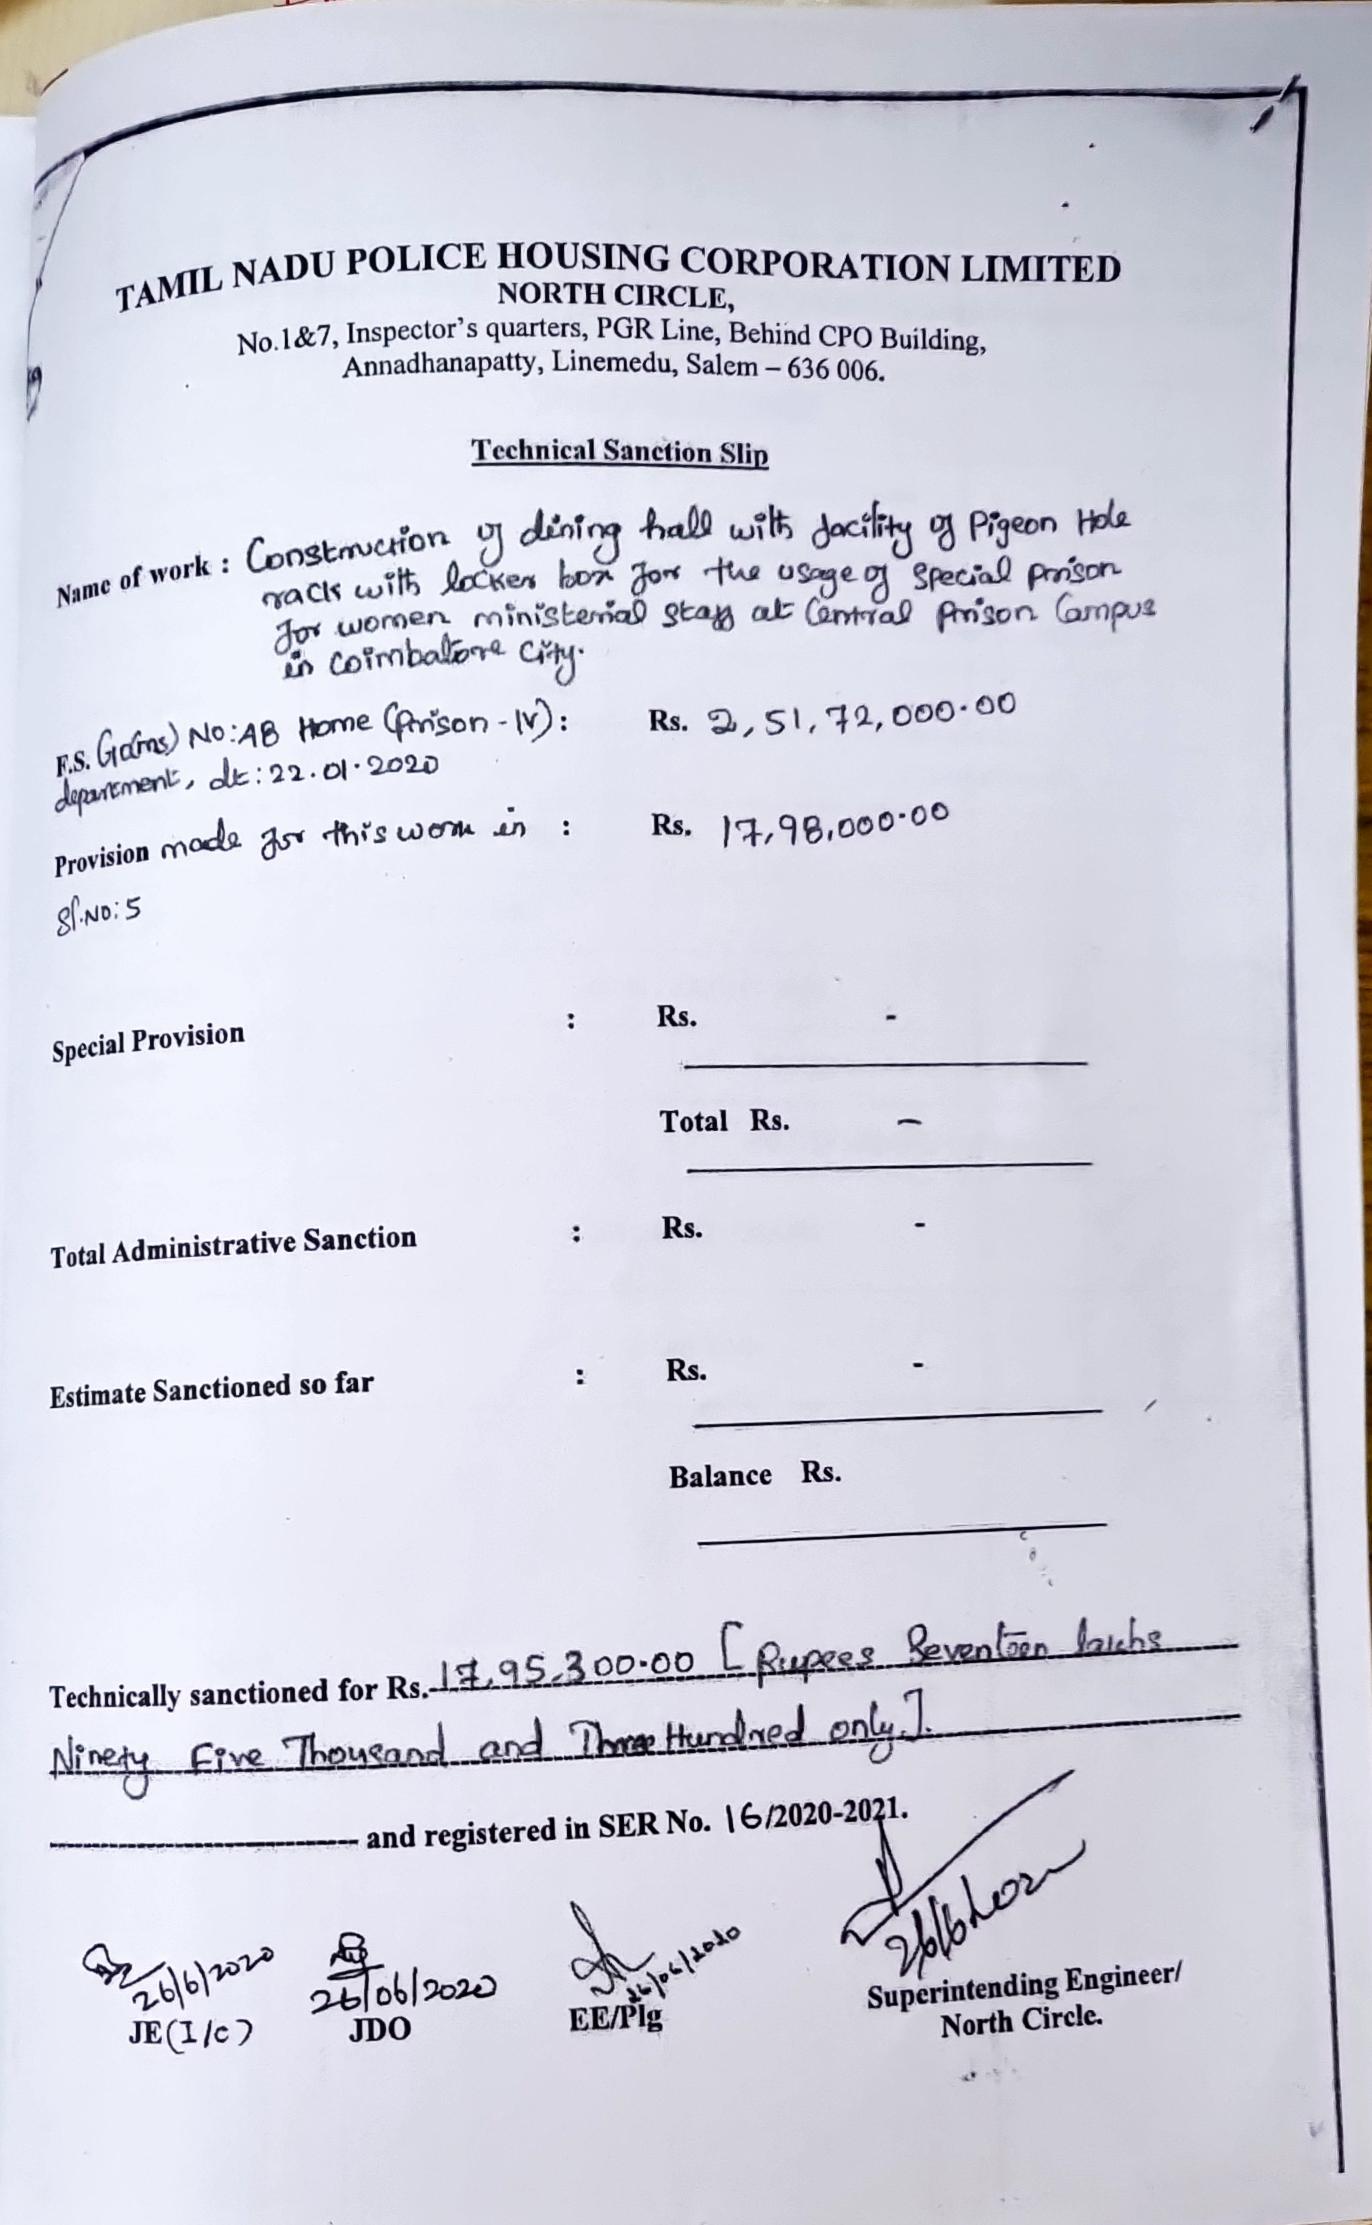 TAMIL NADU POLICE HOUSING CORPORATION LIMITED
NORTH CIRCLE,
No.1&7, Inspector's quarters, PGR Line, Behind CPO Building,
Annadhanapatty, Linemedu, Salem – 636 006.
Technical Sanction Slip
Name of work : Construction of dining hall with facility of Pigeon Hole
rack with locker box for the usage of special prison
for women ministerial staff at Central Prison Campus
in Coimbatore City.
F.S. G.O(ms) No:48 Home (Prison - IV) : Rs. 2,51,72,000.00
department, dt: 22.01.2020
Provision made for this work in : Rs. 17,98,000.00
Sl.No: 5
Special Provision : Rs. -
Total Rs. -
Total Administrative Sanction : Rs. -
Estimate Sanctioned so far : Rs. -
Balance Rs.
Technically sanctioned for Rs. 17,95,300.00 [Rupees Seventeen lakhs
Ninety Five Thousand and Three Hundred only].
and registered in SER No. 16/2020-2021.
26/6/2020 26/06/2020 26/06/2020 26/6/2020
JE(I/c) JDO EE/Plg Superintending Engineer/
North Circle.